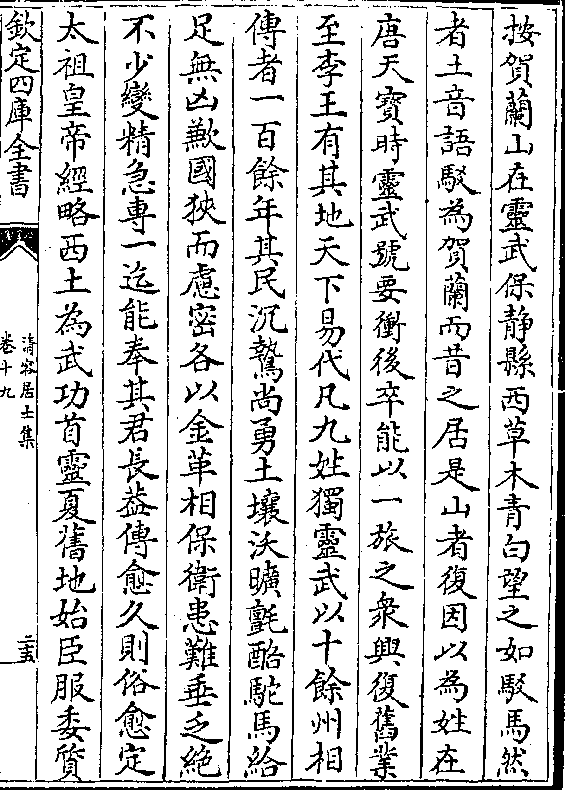 按賀蘭山在靈武保静縣西草木青白望之如駮馬然
者土音語駮為賀蘭而昔之居是山者復因以為姓在
唐天寶時靈武號要衝後卒能以一旅之衆興復舊業
至李王有其地天下易代凡九姓獨靈武以十餘州相
傳者一百餘年其民沉鷙尚勇土壤沃曠氈酪駝馬給
足無凶歉國狹而慮密各以金革相保衛患難垂乏絶
不少變精急專一迄能奉其君長葢傳愈久則俗愈定
太祖皇帝經略西土為武功首靈夏舊地始臣服委質
欽定四庫全書
清容居士集
卷十九
二五